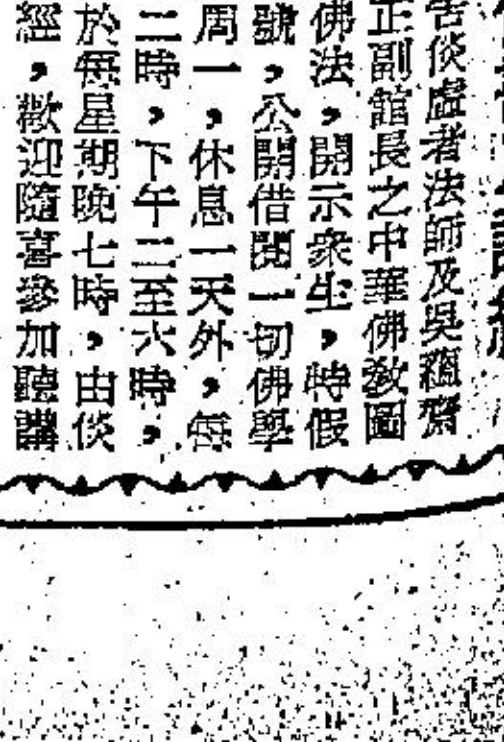 倓虛老法師及吳蘊齋
正副館長之中華佛教圖
佛法，開示衆生，時假
號，公開借閱一切佛學
周一，休息一天外，每
二時，下午二至六時，
於每星期晚七時，由倓
經，歡迎隨喜參加聽講